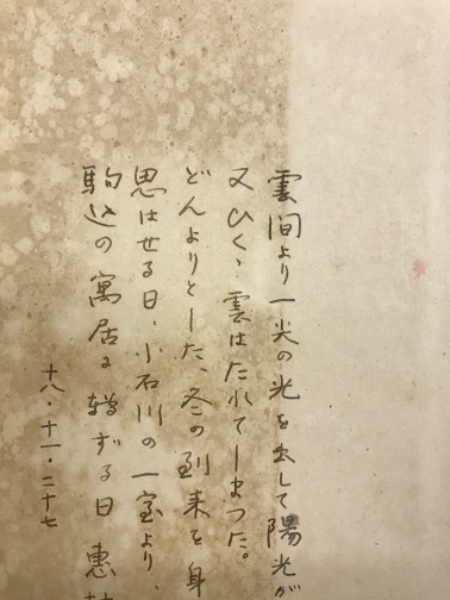 雲間より一尖の光を出して陽光が
又ひく、雲はたれてしまつた。
どんよりとした、冬の到来を身
思はせる日、小石川の一室より、
駒込の寓居に轉ずる日 惠
十八・十一・二十七